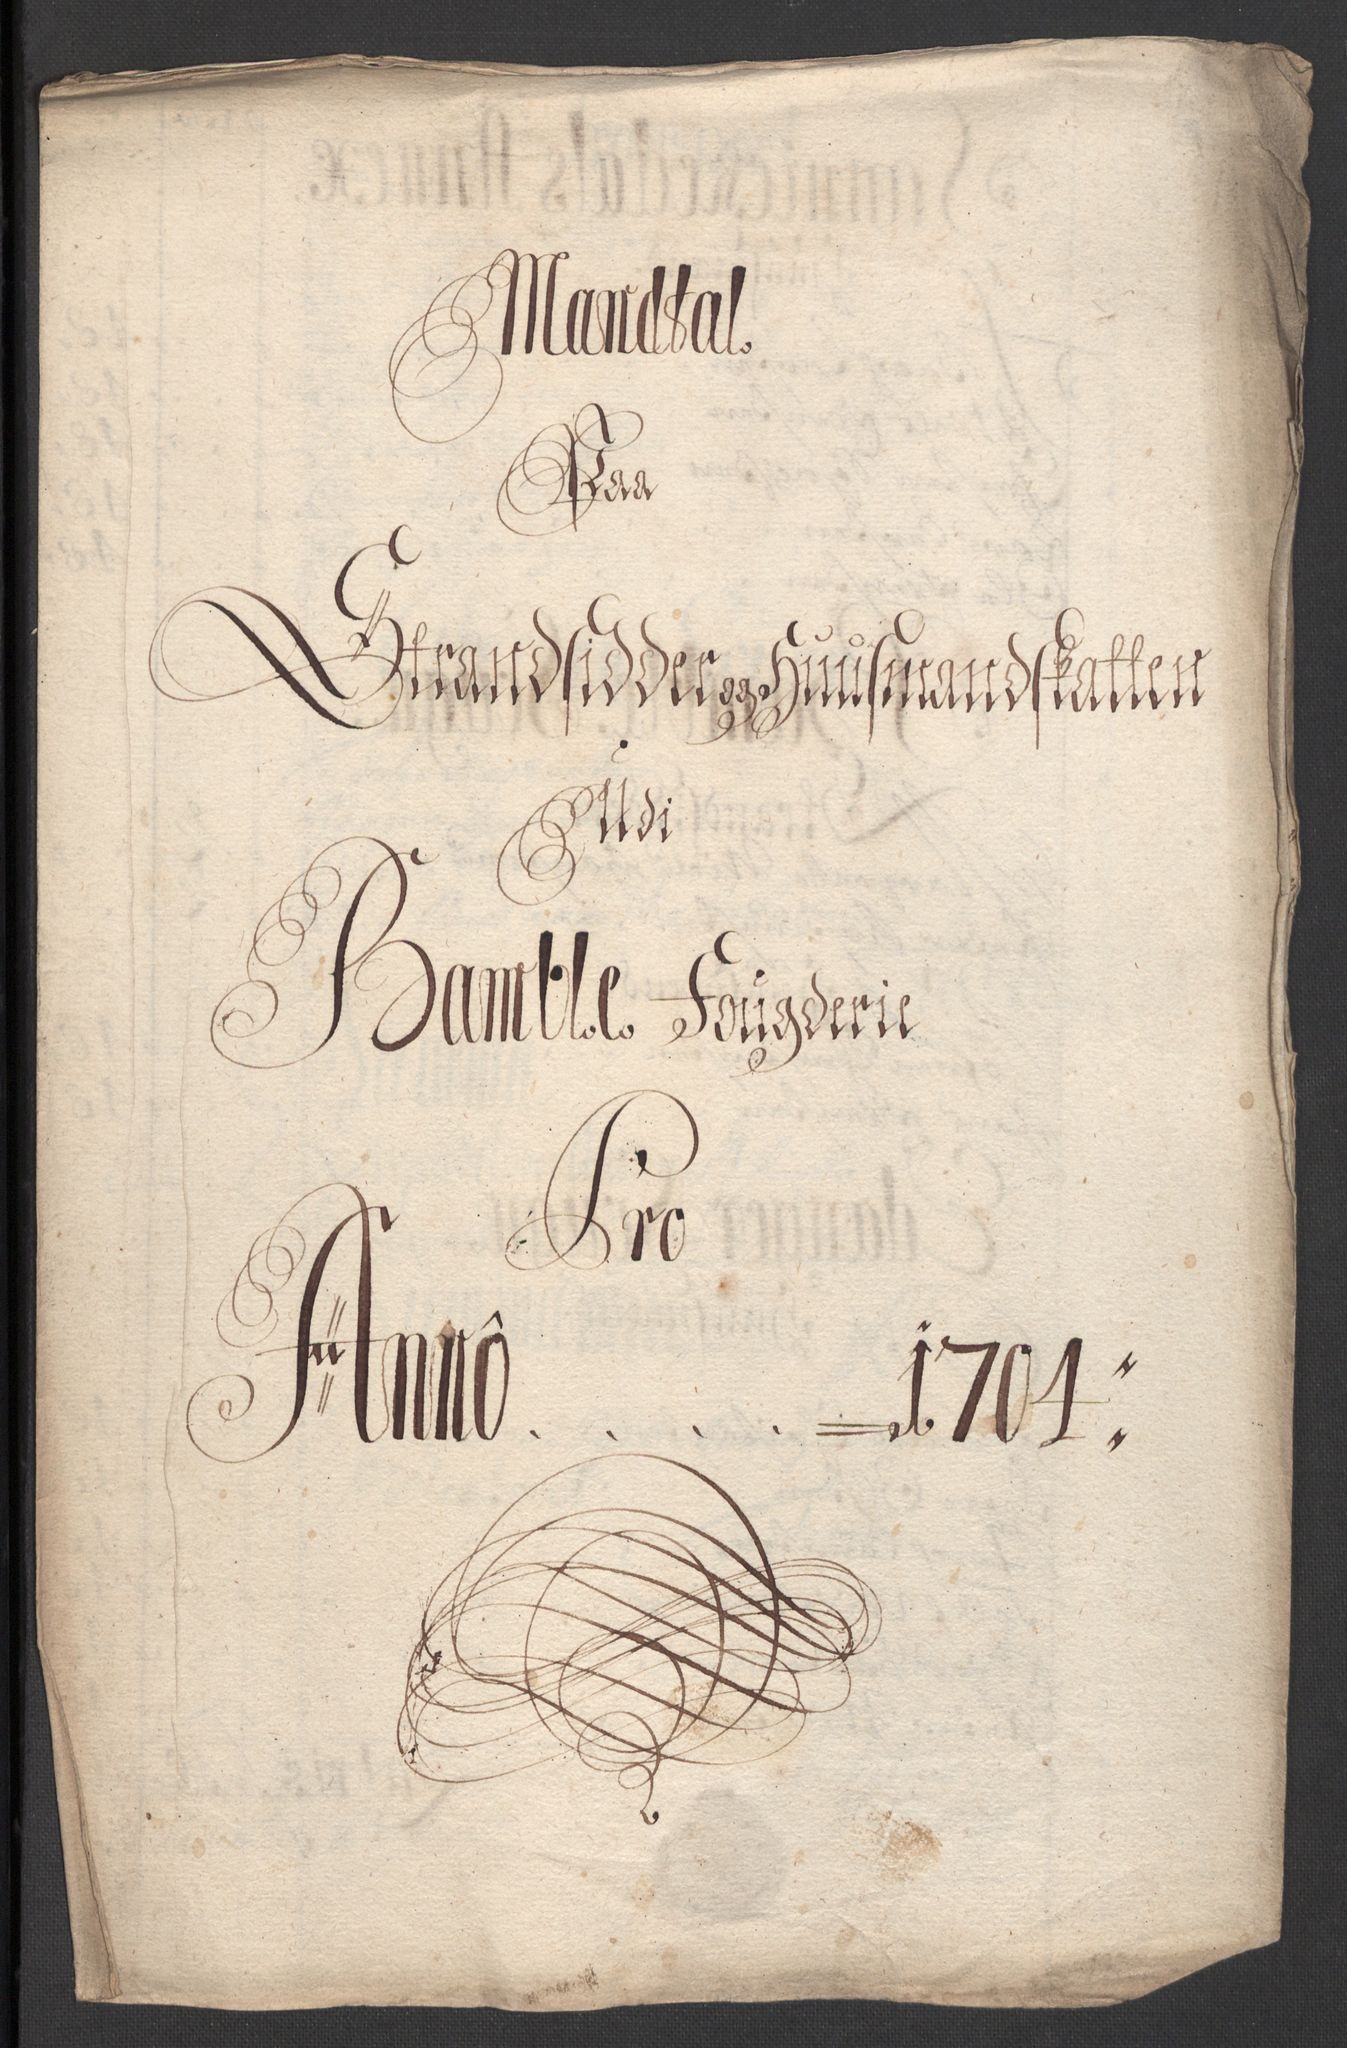 Mandtal.
Paa
Strandsidder og Huusmandskatten
Udi
Bamble Fougderie
Pro
Anno . . . . = 1704